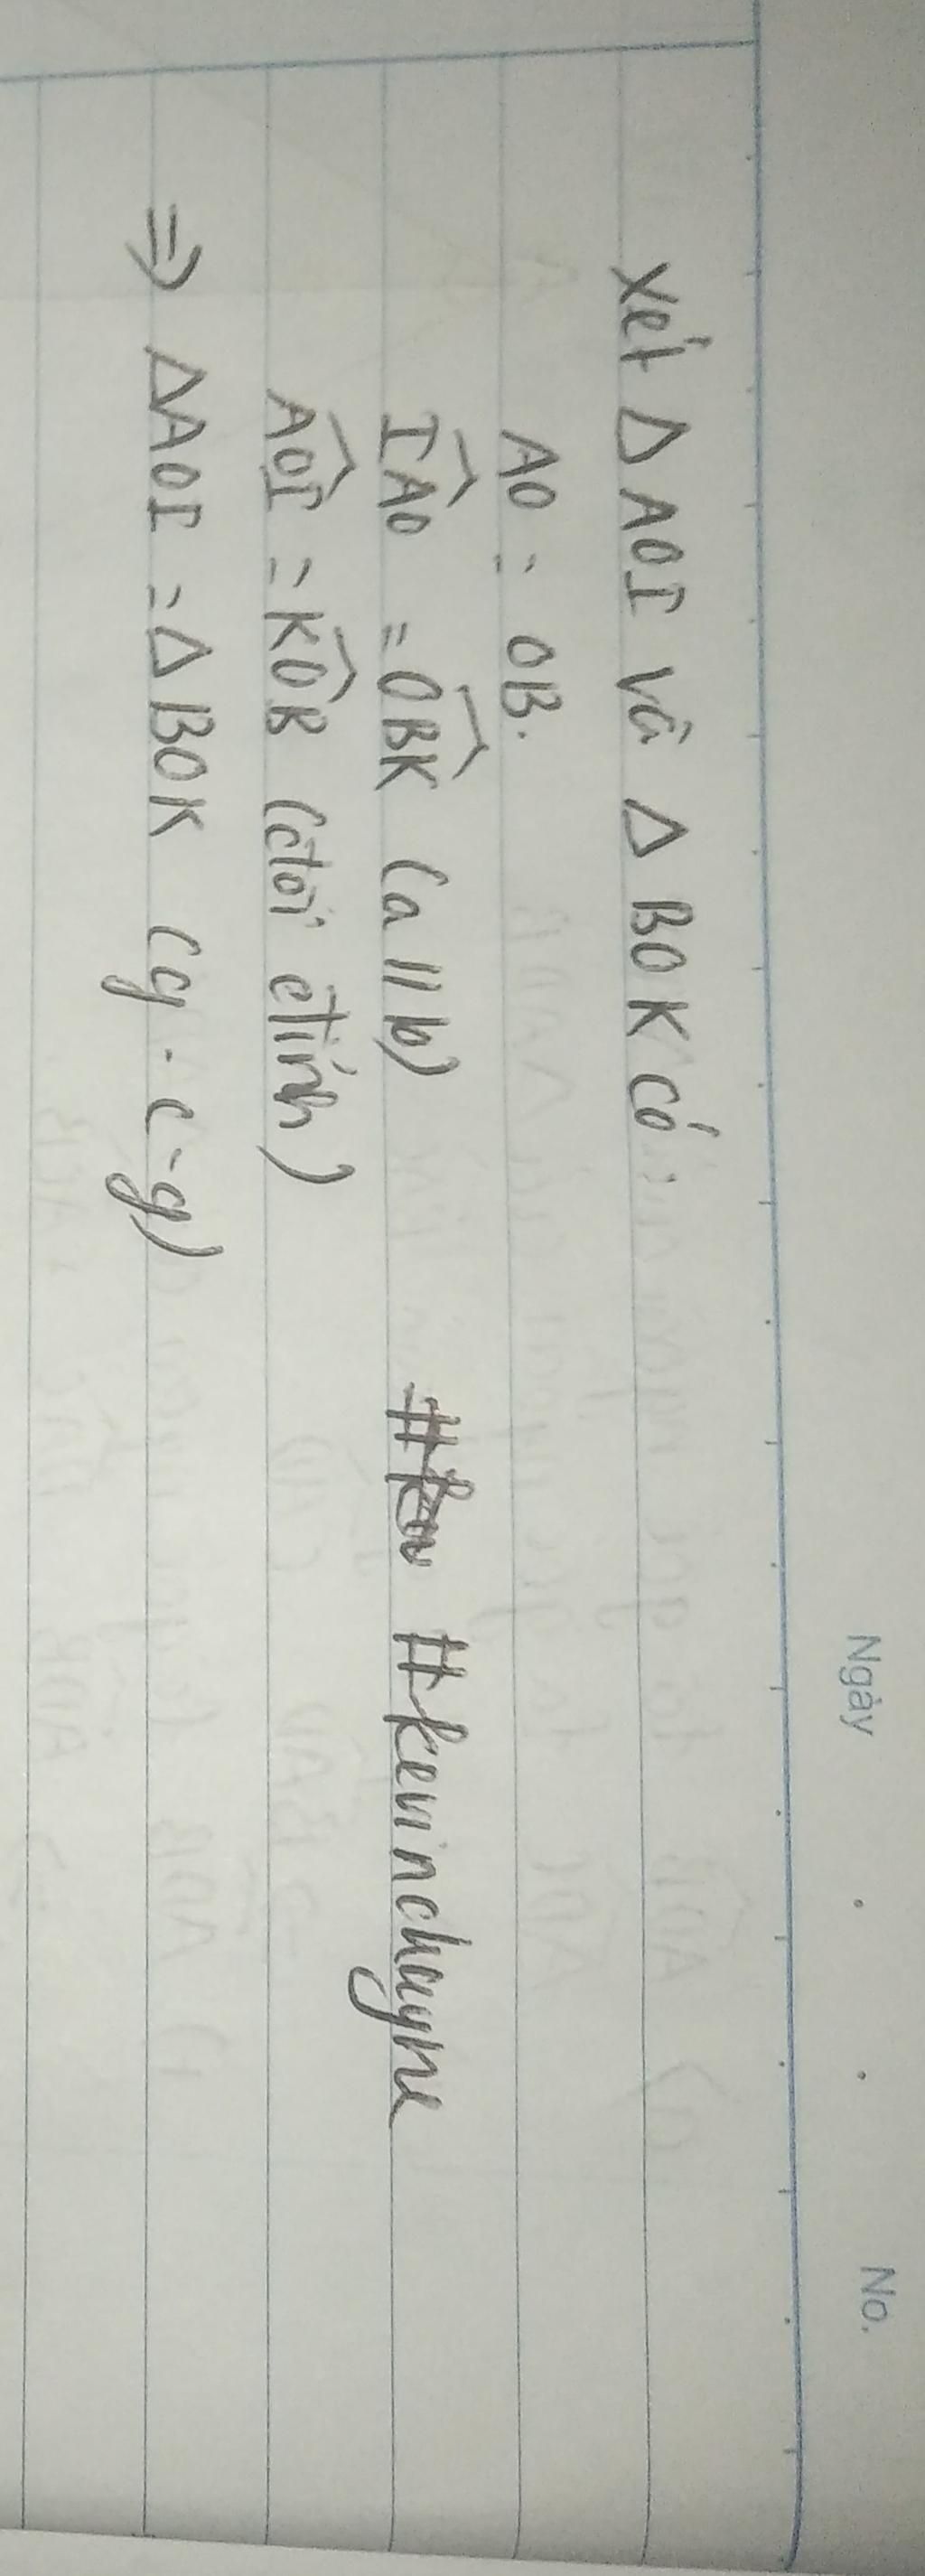 Ngày . . No.
Xét Δ AOI và Δ BOK có :
AO = OB.
IAO = OBK (a // b)
AOI = KOB (đối đỉnh)
⇒ ΔAOI = Δ BOK (g.c-g)
#kevinchayne